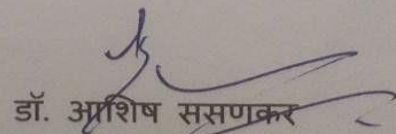 डॉ. आशिष ससाणकर